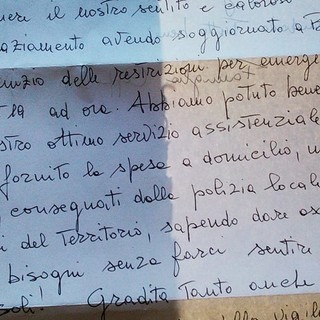 il nostro sentito e caloroso
aziamento avendo soggiornato a
delle restrizioni per emerge
ad ora. Abbiamo potuto bene
stro ottimo servizio assistenziale
fornito la spesa a domicilio,
consegnati dalla polizia locale
i del Territorio, sapendo dare
bisogni senza farci sentire
soli! Gradita Tanto anche